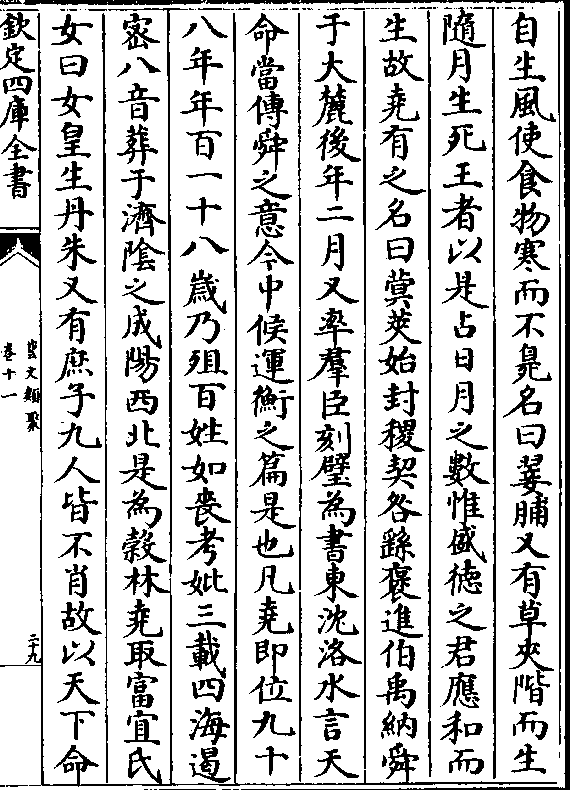 自生風使食物寒而不臰名曰翣脯又有草夾階而生
隨月生死王者以是占日月之數惟盛徳之君應和而
生故堯有之名曰蓂莢始封稷契咎繇褒進伯禹納舜
于大麓後年二月又率羣臣刻璧為書東沈洛水言天
命當傳舜之意今中候運衡之篇是也凡堯即位九十
八年年百一十八嵗乃殂百姓如喪考妣三載四海遏
宻八音葬于濟陰之成陽西北是為榖林堯取富宜氏
女曰女皇生丹朱又有庶子九人皆不肖故以天下命
欽定四庫全書
藝文類聚
卷十一
二十九